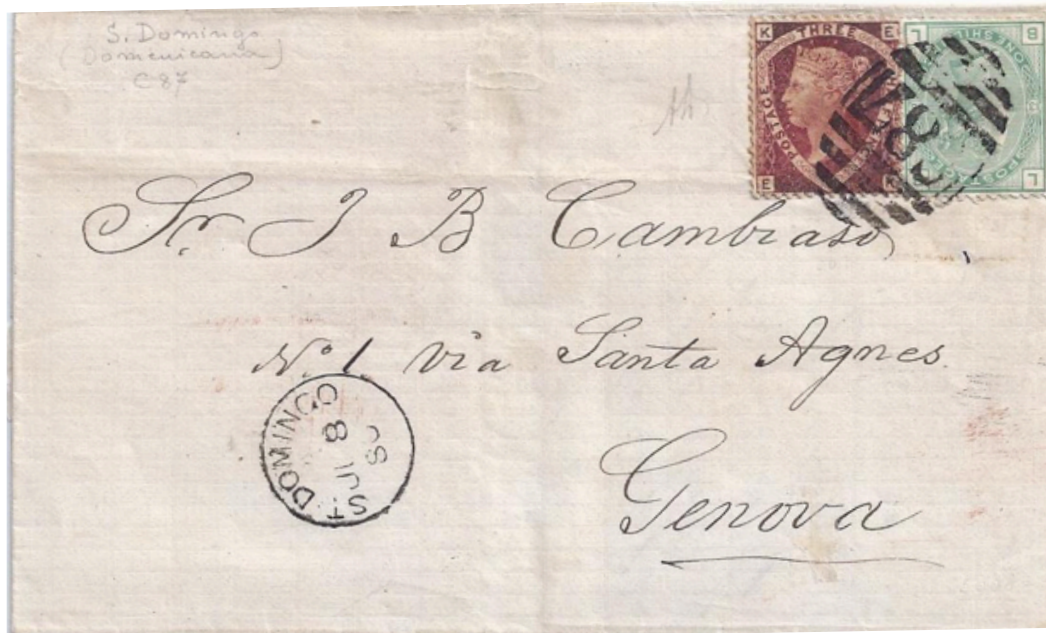 S. Domingo
(Domenicana)
C87
K THREE E
POSTAGE
E K
B L
ONE SHIL
POSTAGE
L
Sr. J B Cambiaso
No. 1 Via Santa Agnes
ST. DOMINGO
JU 8
80
Genova